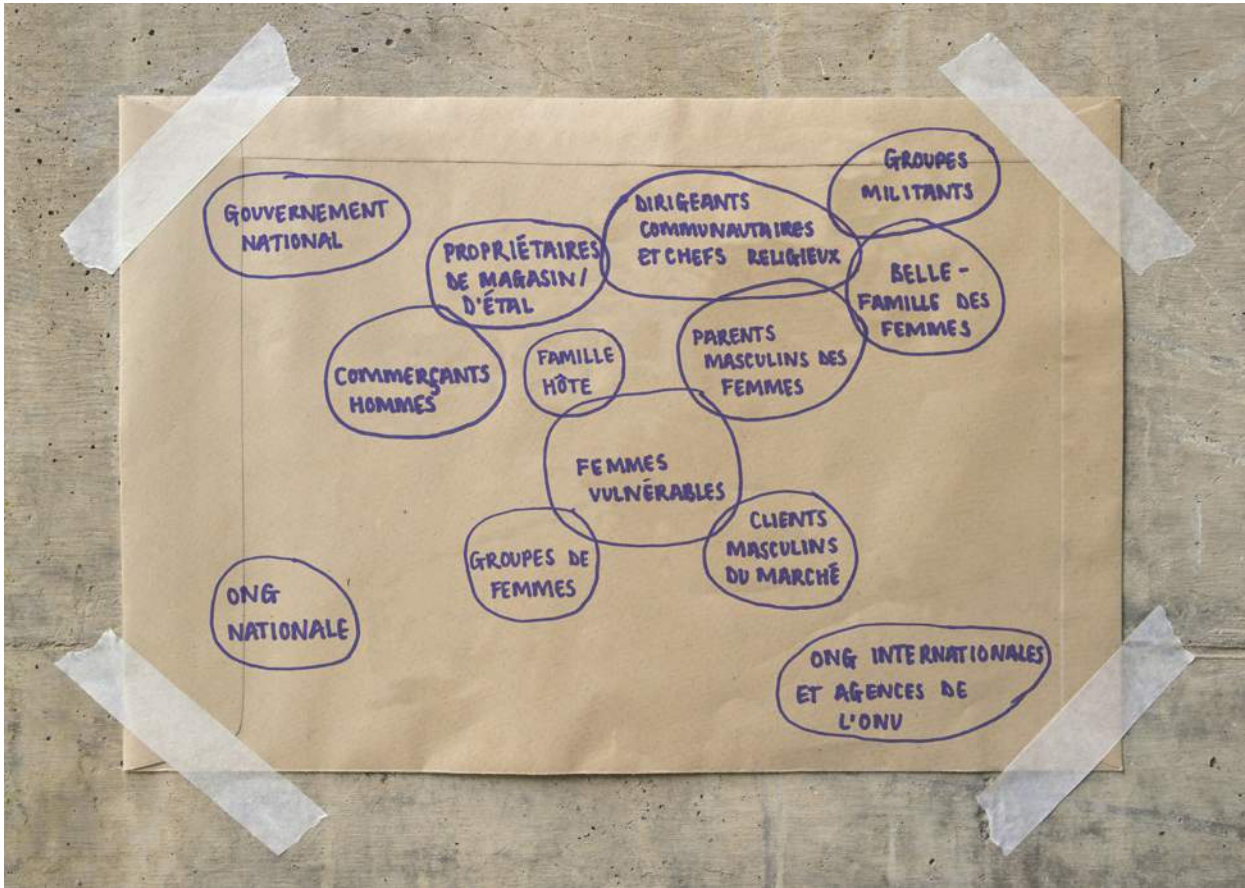 GOUVERNEMENT
NATIONAL
PROPRIÉTAIRES
DE MAGASIN/
D'ÉTAL
DIRIGEANTS
COMMUNAUTAIRES
ET CHEFS RELIGIEUX
GROUPES
MILITANTS
BELLE-
FAMILLE DES
FEMMES
COMMERÇANTS
HOMMES
FAMILLE
HÔTE
PARENTS
MASCULINS DES
FEMMES
FEMMES
VULNÉRABLES
GROUPES DE
FEMMES
CLIENTS
MASCULINS
DU MARCHÉ
ONG
NATIONALE
ONG INTERNATIONALES
ET AGENCES DE
L'ONU